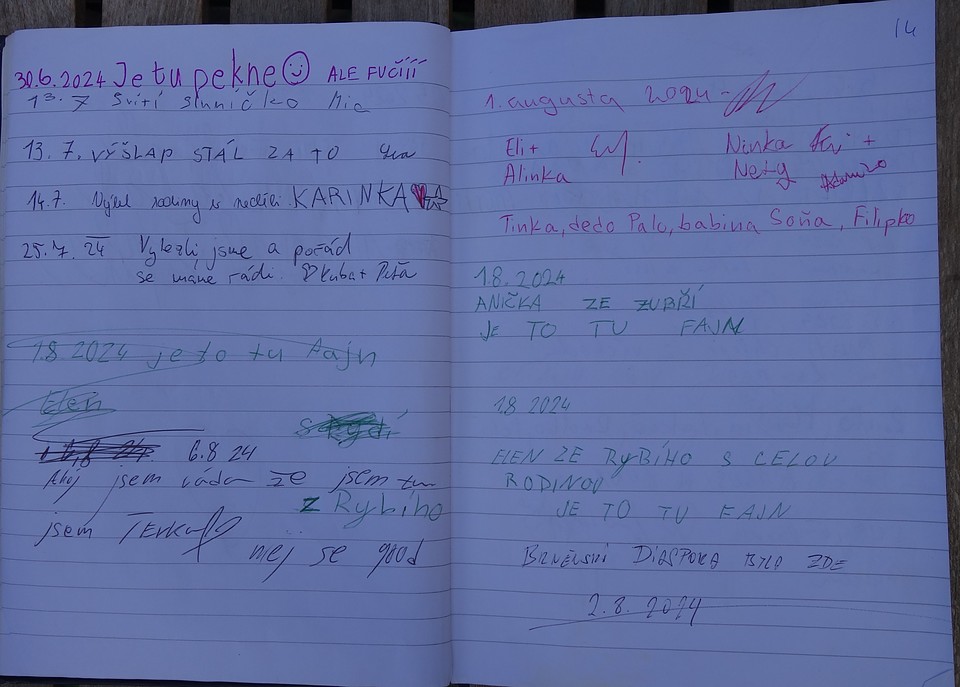 30.6.2024 Je tu pekne ALE FUČÍÍÍ
13. 7 Svítí sluníčko Mia
13. 7. VÝŠLAP STÁL ZA TO
14.7. Výlet rodiny v neděli KARINKA
25. 7. 24 Vylezli jsme a pořád
se máme rádi. Kuba + Péťa
1.8 2024 je to tu fajn
Elen
6.8 24
Ahoj jsem ráda že jsem tu
z Rybího
jsem Terka
měj se good
14
1. augusta 2024 -
Eli +
Alinka
Ninka +
Nety Adamko
Tinka, dedo Palo, babina Soňa, Filipko
1.8.2024
ANIČKA ZE ZUBŘÍ
JE TO TU FAJN
1.8 2024
ELEN ZE RyBÍHO S CELOU
RODINOU
JE TO TU FAJN
BRNĚNSKÁ DIASPORA BYLA ZDE
2.8. 2024